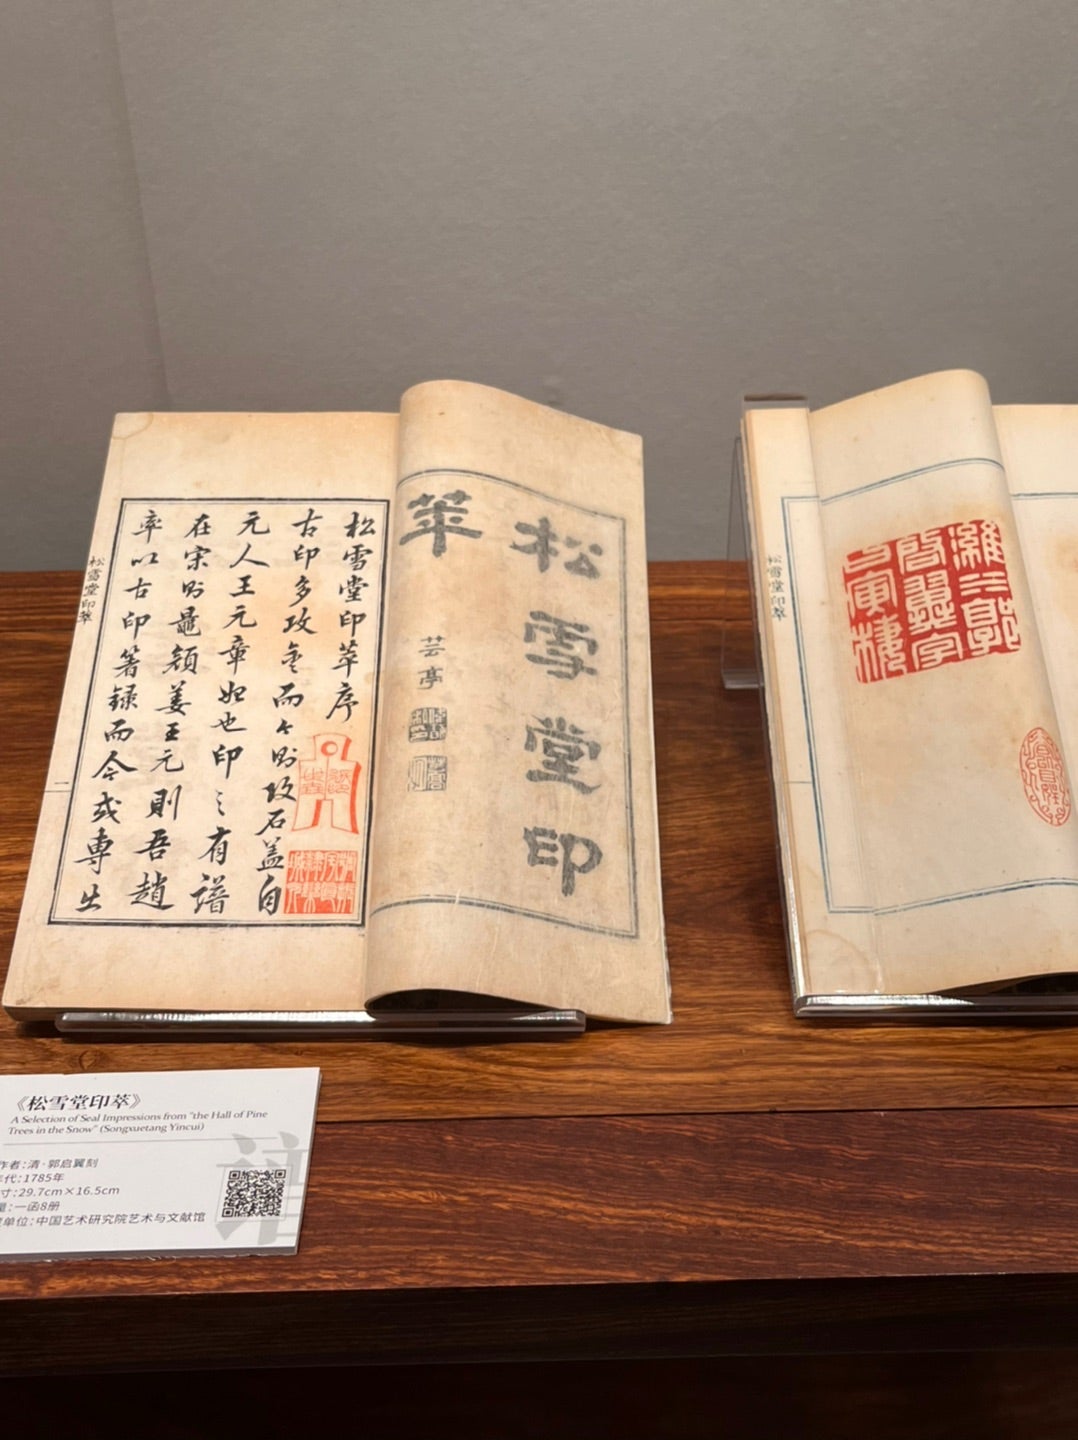 松雪堂印
萃
芸亭
松雪堂印萃序
古印多攻金而々则攻石盖自
元人王元章始也印之有譜
在宋则鼂顏姜王元則吾趙
率以古印箸録而今或専出
松雪堂印萃
一
濰江郭
啓翼字
寅樓
松雪堂印萃
《松雪堂印萃》
A Selection of Seal Impressions from "the Hall of Pine
Trees in the Snow" (Songxuetang Yincui)
作者：清·郭启翼刻
年代：1785年
寸：29.7cm×16.5cm
量：一函8册
单位：中国艺术研究院艺术与文献馆
谱